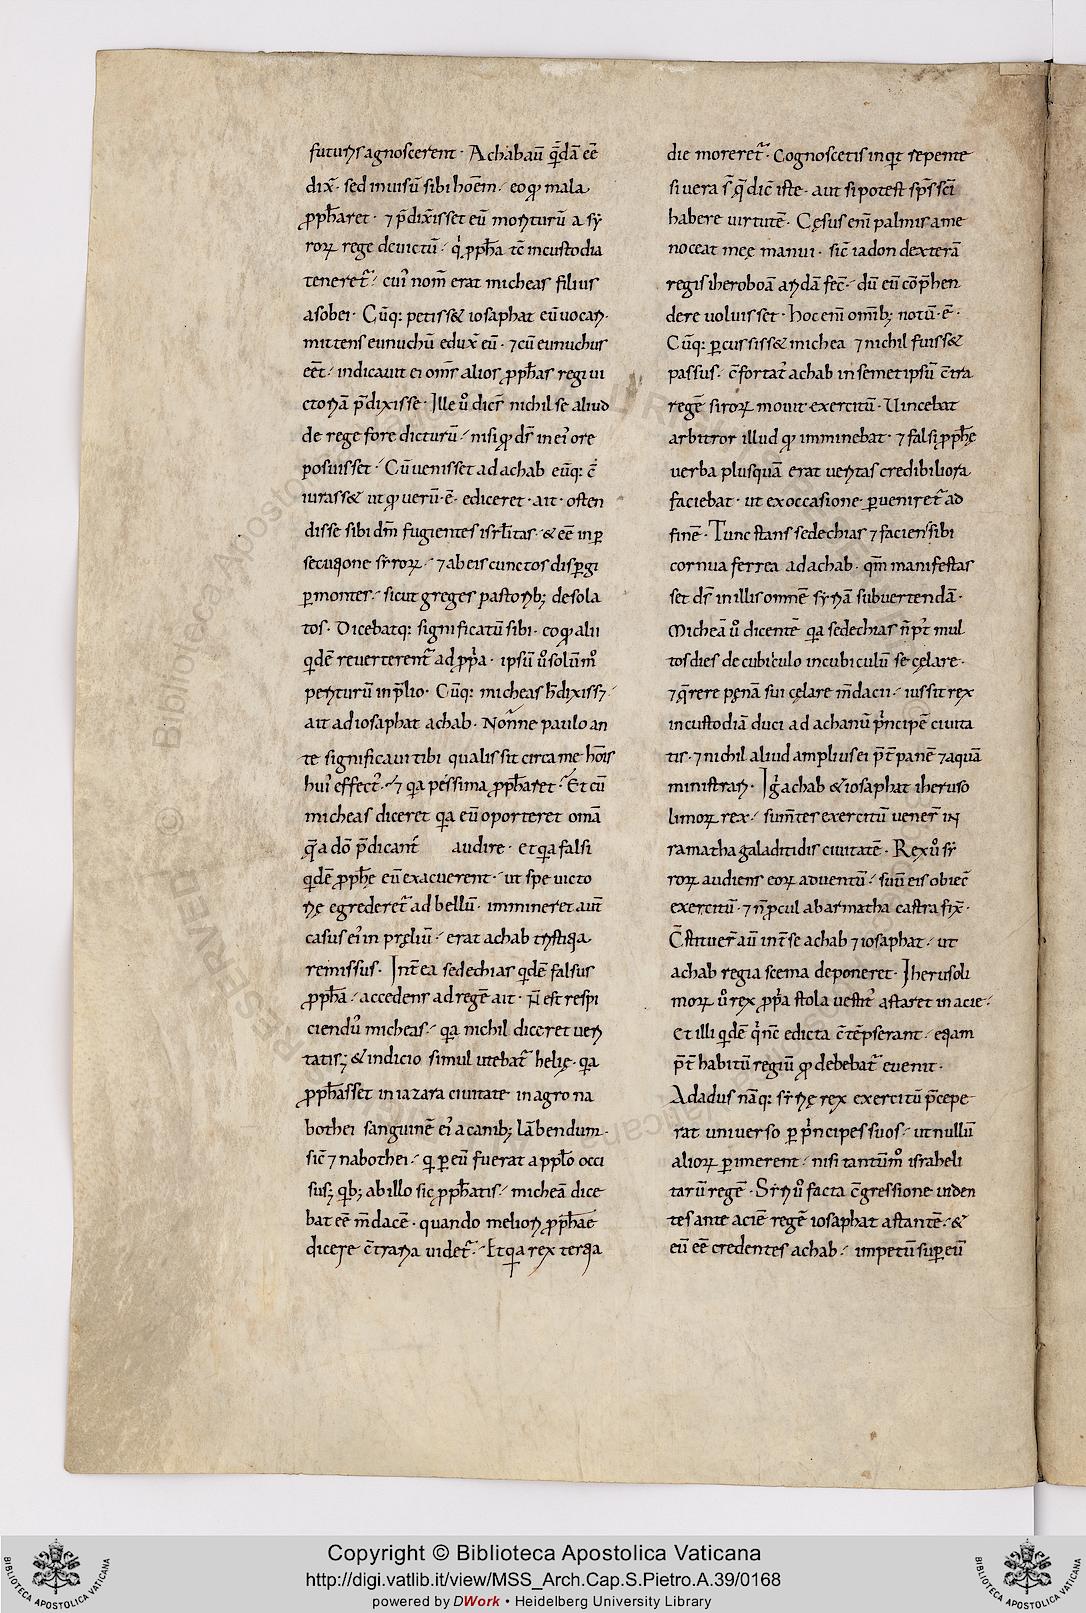 futuris agnoscerent · Achab aū q̄dā eē
dix̄ · sed inuisū sibi hoēm · eo qđ mala
ꝓph̄aret · ⁊ p̄dixisset eū moriturū a sy
roꝝ rege deuictū · q̇ ꝓph̄a tc̄ in custodia
teneret᷑ · cui᷒ nom̄ erat micheas filius
asobei · Cūq: petiss& iosaphat eū uocari ·
mittens eunuchū edux̄ eū · ⁊ cū eunuchus
eēt · indicauit ei om̄s alios ꝓph̄as regi ui
ctoriā p̄dixisse · Ille ū dicēs nichil se aliud
de rege fore dicturū · nisi qđ ds̄ in ei᷒ ore
posuisset · Cū uenisset ad achab eūq: c̄
iurass& ut qđ uerū · ē · ediceret · ait · osten
disse sibi dm̄ fugientes isrl̄itas · & eē in ꝑ
secutione syroꝝ · ⁊ ab eis cunctos dispergi
ꝑ montes · sicut greges pastorib; desola
tos · Dicebatq: significatū sibi · eo qđ alii
qidē reuerterent᷑ ad ꝓpͥa · ipsū ū solūm̊
periturū in p̄lio · Cūq: micheas h̄ dixiss; ·
ait ad iosaphat achab · Nonne paulo an
te significaui tibi qualis sit circa me hōis
hui᷒ effect᷒ · ⁊ qa pessima ꝓph̄aret · Et cū
micheas diceret qa eū oporteret omā
q̄ a dō p̄dicant᷑ audire · et qa falsi
qidē ꝓph̄ę eū exacuerent · ut spe uicto
rię egrederet᷑ ad bellū · immineret aut̄
casus ei᷒ in pręliū · erat achab tristitia
remissus · Int̄ea sedechias qidē falsus
ꝓph̄a · accedens ad regē ait · n̄ est respi
ciendū micheas · qa nichil diceret ueri
tatis; & indicio simul utebat᷑ helię · qa
ꝓph̄asset in iazara ciuitate in agro na
bothei sanguinē ei᷒ a canib; lābendum ·
sic̄ ⁊ nabothei · q ꝑ eū fuerat a pplo occi
sus; qb; ab illo sic ꝓph̄atis · micheā dice
bat eē m̄dacē · quando meliori ꝓph̄ae
dicere c̄traria uidet᷑ · Et qa rex tertia
die moreret᷑ · Cognoscetis inqt repente
si uera s̄ q̄ dic̄ iste · aut si potest sp̄s sc̄i
habere uirtutē · Cęsus enī palmis a me
noceat meę manui · sic̄ iadon dexterā
regis iheroboā aridā fec̄ · dū eū cōp̄hen
dere uoluisset · hoc enī omīb; notū · ē ·
Cūq: ꝑcussiss& michea ⁊ nichil fuiss&
passus · c̄fortat᷒ achab in semetipsū c̄tra
regē siroꝝ mouit exercitū · Uincebat
arbitror illud qđ imminebat · ⁊ falsi ꝓph̄ę
uerba plusquā erat ueritas credibiliora
faciebat · ut ex occasione ꝑueniret᷑ ad
finē · Tunc stans sedechias ⁊ faciens sibi
cornua ferrea ad achab · qm̄ manifestas
set ds̄ in illis omnē syriā subuertendā ·
Micheā ū dicentē qa sedechias n̄ pt᷑ mul
tos dies de cubiculo in cubiculū se cęlare ·
⁊ q̄rere pęnā sui cęlare m̄dacii · iussit rex
in custodiā duci ad achanū pͥncipē ciuita
tis · ⁊ nichil aliud amplius ei p̄t̄ panē ⁊ aquā
ministrari · Igͥ achab & iosaphat iheruso
limoꝝ rex · sumtes exercitū uener̄ in
ramatha galaditidis ciuitatē · Rex ū sy
roꝝ audiens eoꝝ aduentū · suū eis obiec̄
exercitū · ⁊ n̄ ꝓcul ab armatha castra fix̄ ·
C̄stituer̄ aū int̄ se achab ⁊ iosaphat · ut
achab regia scema deponeret · Iherusoli
moꝝ ū rex ꝓpͥa stola uestit᷒ astaret in acie ·
Et illi qidē q̇ nc̄ edicta c̄tēpserant · etiam
p̄t̄ habitū regiū qđ debebat᷑ euenit ·
Adadus nāq: syrię rex exercitū p̄cepe
rat uniuerso ꝑ pͥncipes suos · ut nullū
alioꝝ ꝑimerent · nisi tantūm̊ israheli
tarū regē · Siri ū facta c̄gressione uiden
tes ante aciē regē iosaphat astantē · &
eū eē credentes achab · impetū suꝑ eū
Copyright © Biblioteca Apostolica Vaticana
http://digi.vatlib.it/view/MSS_Arch.Cap.S.Pietro.A.39/0168
powered by DWork • Heidelberg University Library